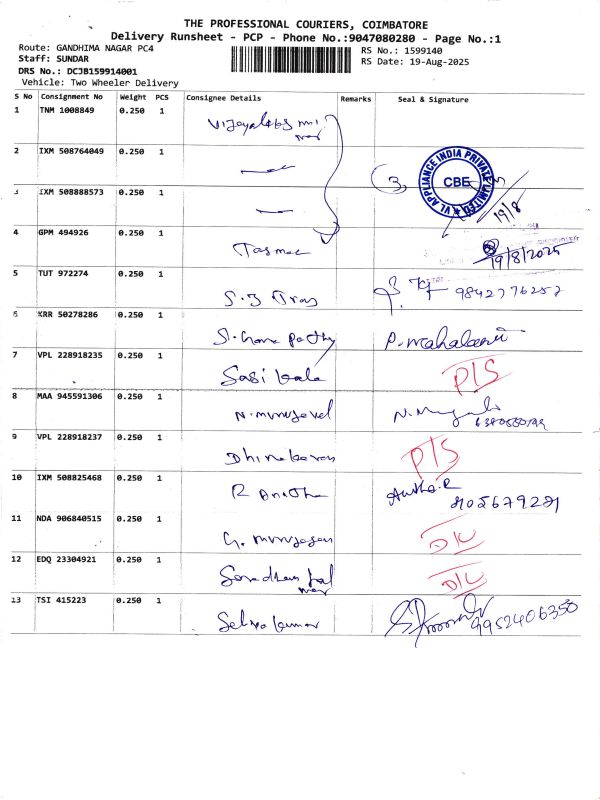 THE PROFESSIONAL COURIERS, COIMBATORE
Delivery Runsheet - PCP - Phone No.:9047080280 - Page No.:1
Route: GANDHIMA NAGAR PC4
Staff: SUNDAR
DRS No.: DCJB159914001
Vehicle: Two Wheeler Delivery
RS No.: 1599140
RS Date: 19-Aug-2025
S No Consignment No Weight PCS Consignee Details Remarks Seal & Signature
1 TNM 1008849 0.250 1
2 IXM 508764049 0.250 1
VL APPLIANCE INDIA PRIVATE LIMITED
CBE
3 IXM 508888573 0.250 1
19/8
4 GPM 494926 0.250 1 Tasmac 19/8/2025
5 TUT 972274 0.250 1 9842776257
6 KRR 50278286 0.250 1 P. Mahalaxmi
7 VPL 228918235 0.250 1 Sasi kala P/S
8 MAA 945591306 0.250 1 N. Murugavel
9 VPL 228918237 0.250 1 Dhinakaran P/S
10 IXM 508825468 0.250 1 R Anitha
11 NDA 906840515 0.250 1 G. Murugesan D/L
12 EDQ 23304921 0.250 1 D/L
13 TSI 415223 0.250 1 Selvakumar 9952406350